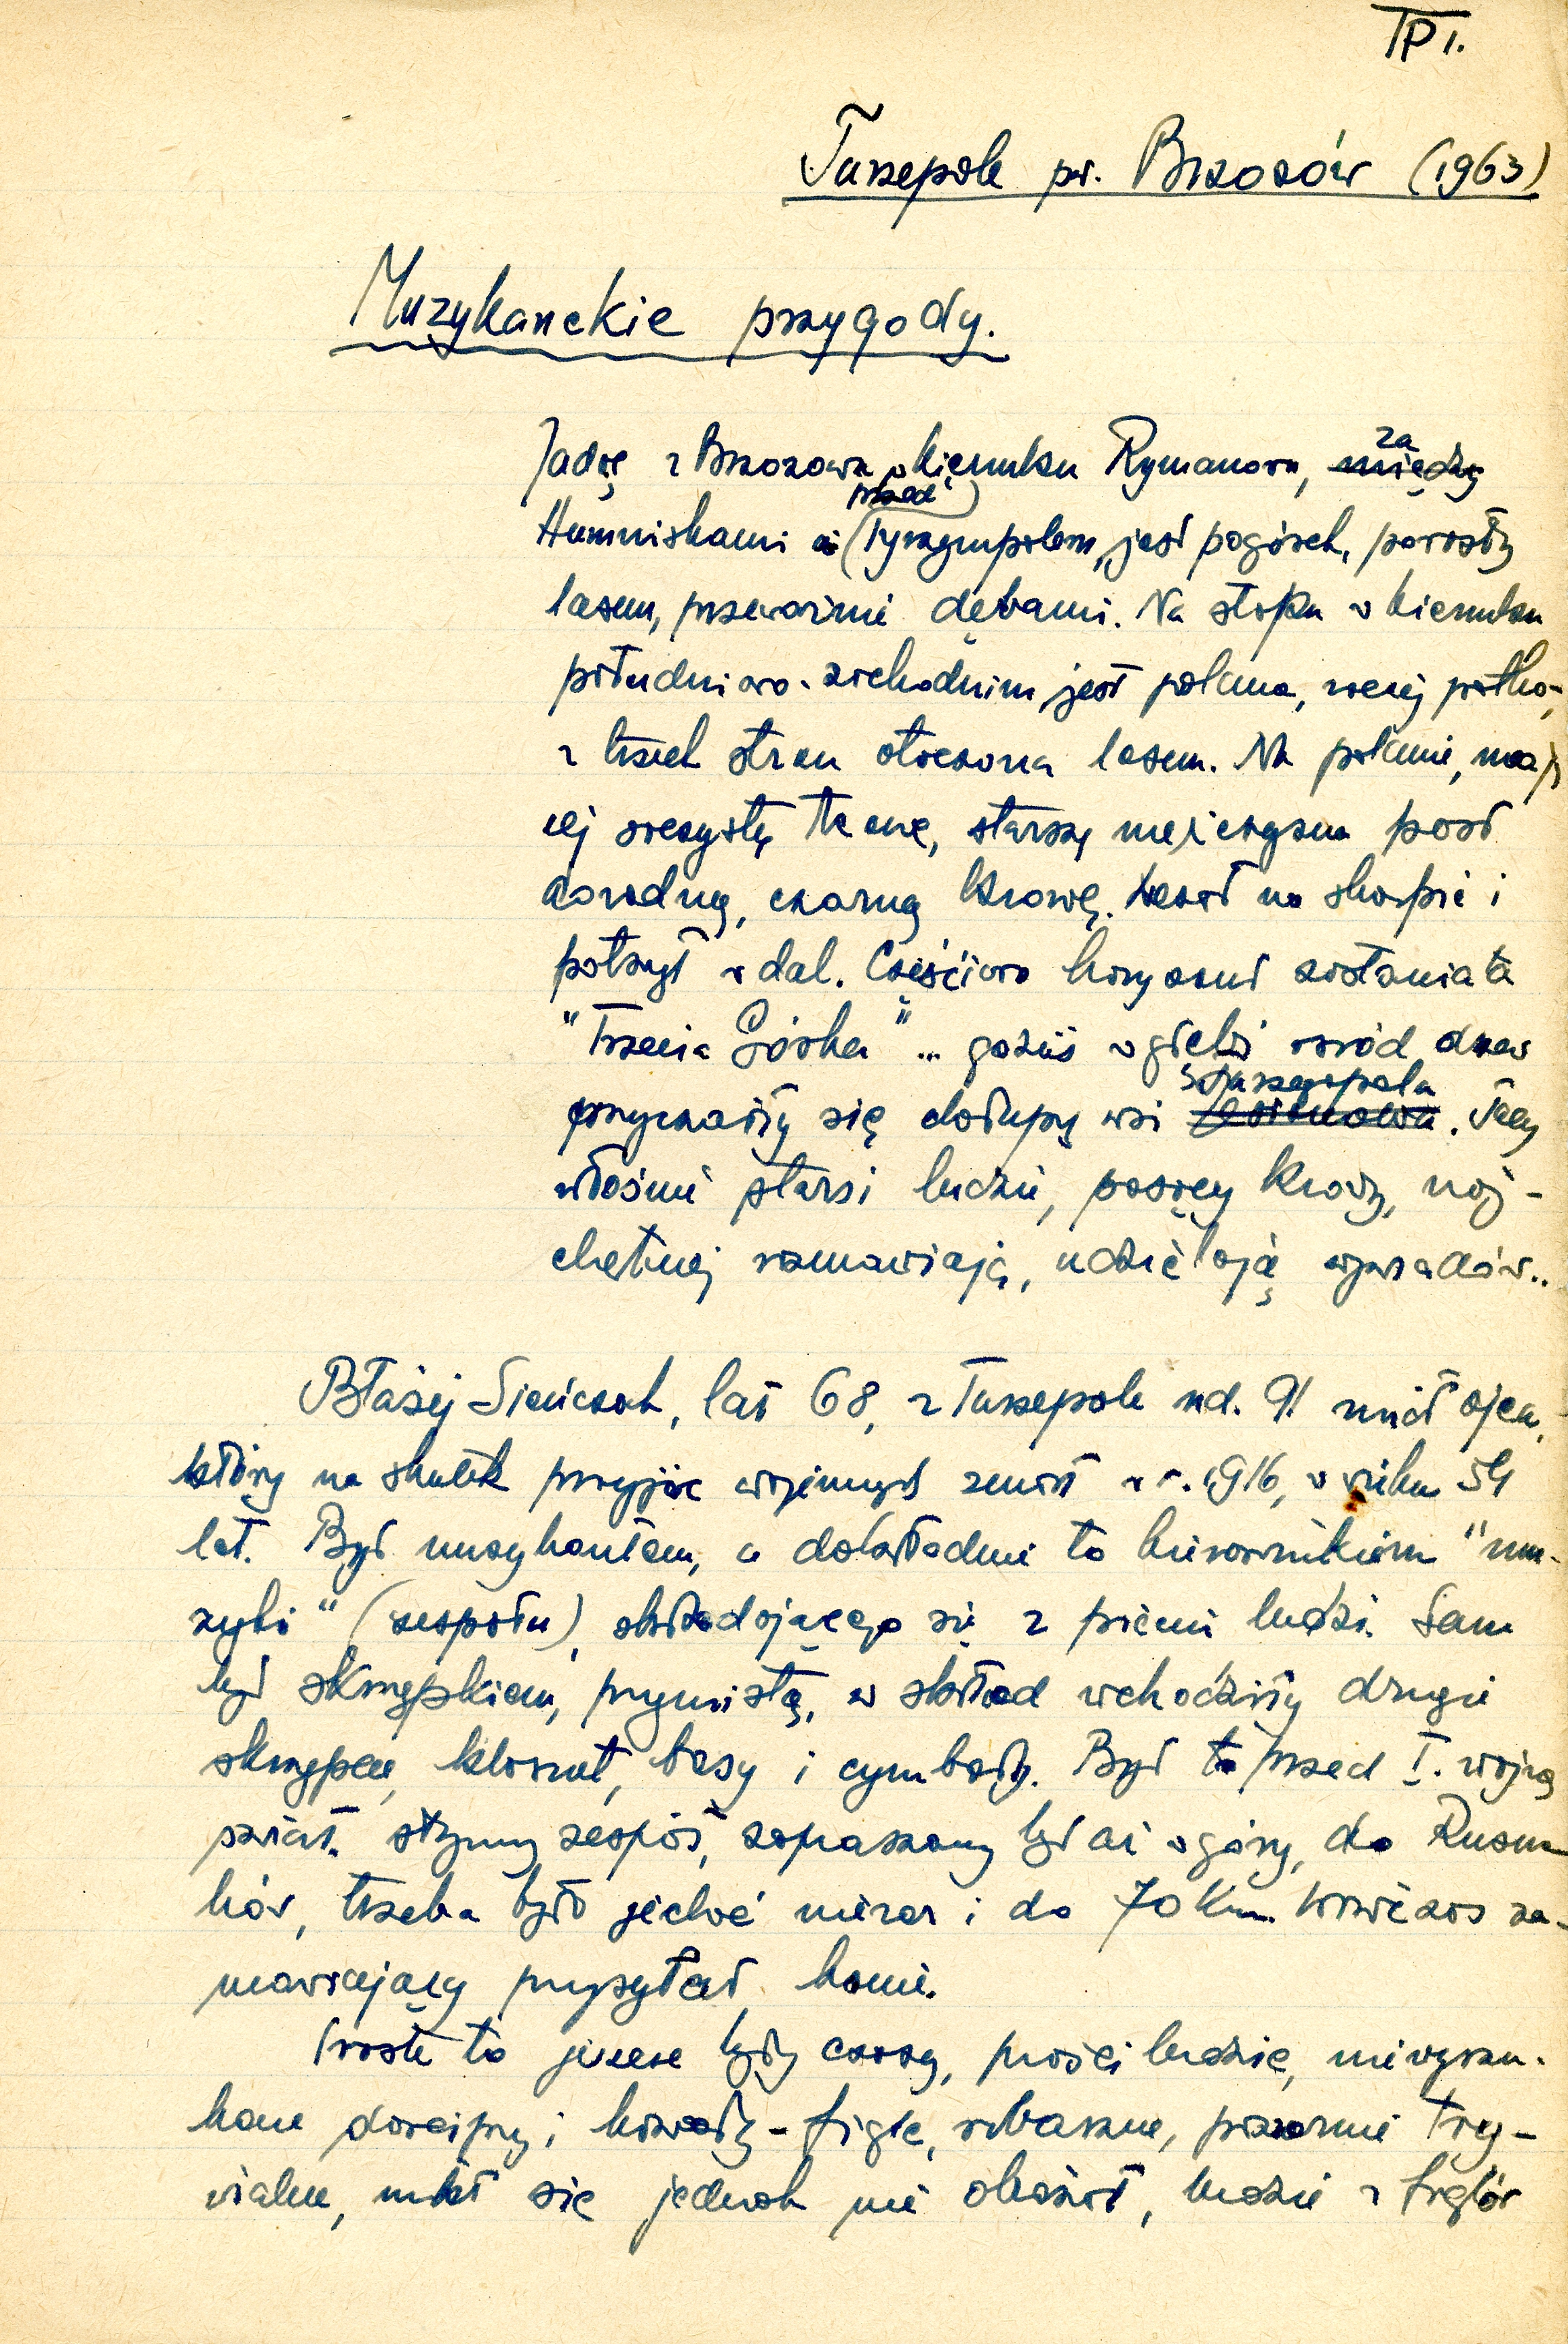 TP 1.
Turzepole pow. Brzozów (1963)
Muzykanckie przygody.
Jadąc z Brzozowa w kierunku Rymanowa, ~~między~~ za
Humniskami a (przed) Tyrzympolem, jest pogórek, porosły
lasem, przeważnie dębami. Na stoku w kierunku
południowo-zachodnim jest polana, raczej
z trzech stron otoczona lasem. Na polanie, mają
cej soczystą trawę, starszy mężczyzna pasł
dorodną, czarną krowę. Leżał na skarpie i
patrzył w dal. Częściowo horyzont zasłaniała
"Trzecia Górka" ... gdzieś w głębi wśród drzew
przyczaiły się chałupy wsi Turzegopola. Tacy
właśnie starsi ludzie, pasący krowy, naj-
chętniej rozmawiają, udzielają wywiadów..
Błażej Sieńczak, lat 68, z Turzepole nd. 91 miał ojca,
który na skutek przejść wojennych zmarł w r. 1916, w wieku 54
lat. Był muzykantem, a dokładnie to kierownikiem "mu-
zyki" (zespołu), składającego się z pięciu ludzi. Sam
był skrzypkiem, prymistą, w skład wchodziły drugie
skrzypce, klarnet, basy i cymbały. Był to przed I. wojną
świat. słynny zespół, zapraszany był aż w góry, do Rusna-
ków, trzeba było jechać nieraz i do 70 km. wówczas za-
mawiający przysyłał konie.
Proste to jeszcze były czasy, prości ludzie, niewyszu-
kane dowcipy i kawały - figle, rubaszne, pozornie try-
wialne, nikt się jednak nie obrażał, ludzie z figlów